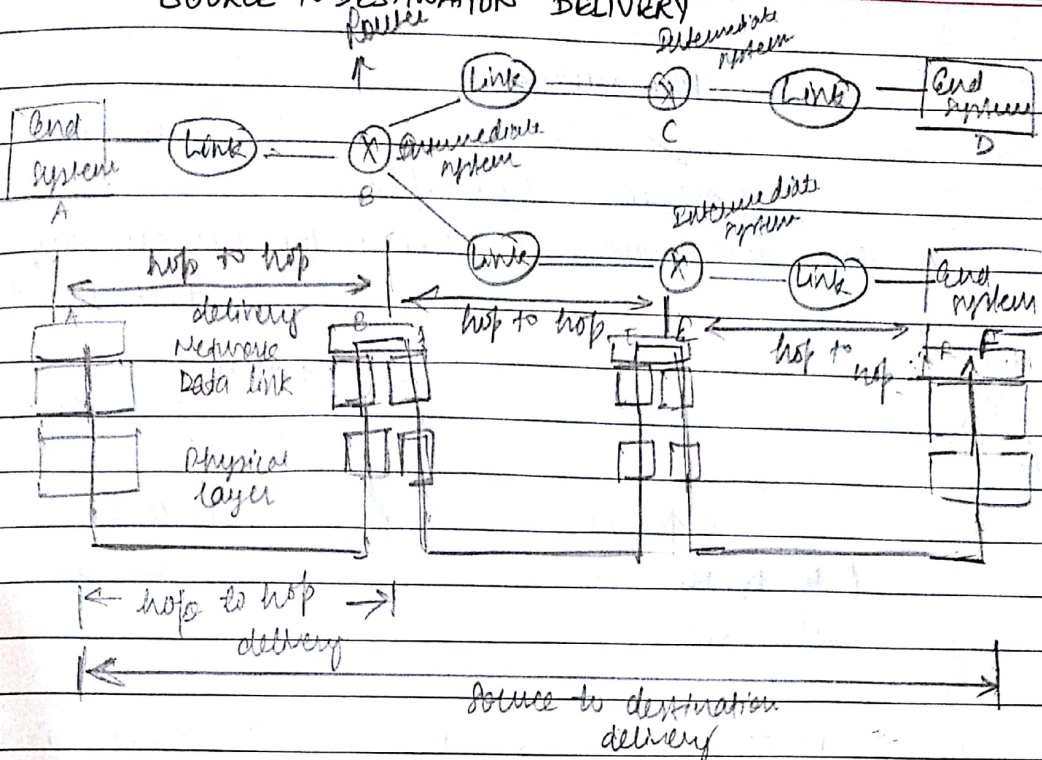 SOURCE TO DESTINATION DELIVERY
Router
Intermediate
system
Link
X
C
Link
End
system
D
End
system
A
Link
X
B
Intermediate
system
Intermediate
system
Link
X
Link
End
system
hop to hop
delivery
hop to hop
hop to
hop
A
B
E
F
Network
Data link
Physical
layer
hop to hop
delivery
Source to destination
delivery